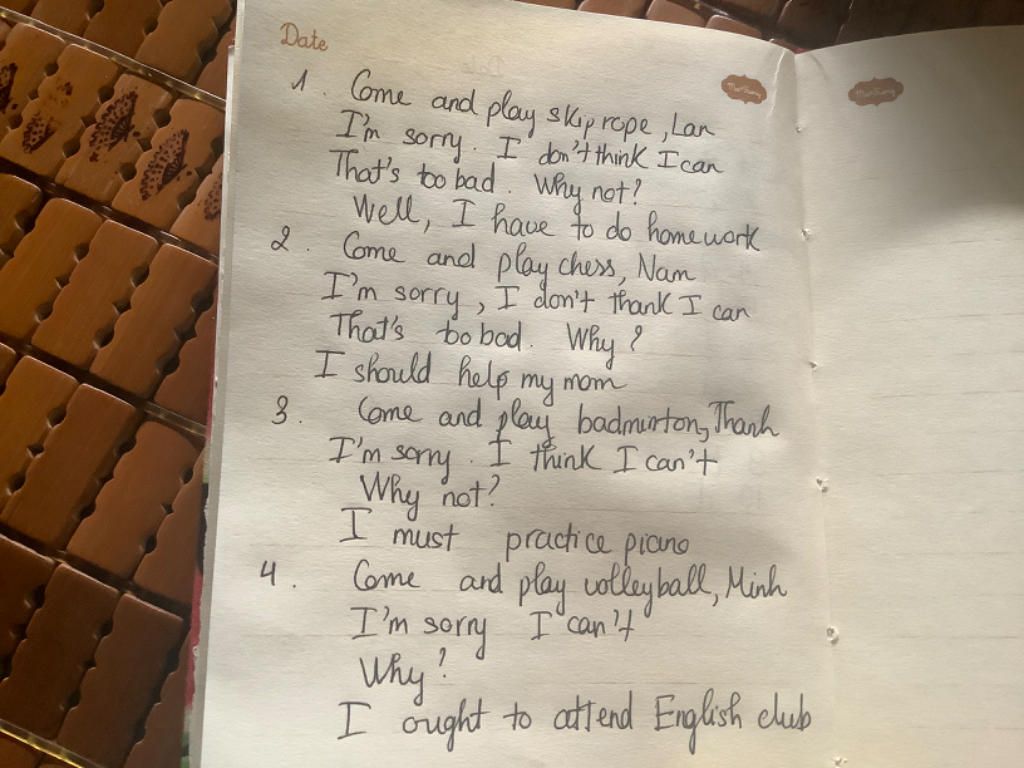 Date
1. Come and play skip rope, Lan
I'm sorry. I don't think I can
That's too bad. Why not?
Well, I have to do homework
2. Come and play chess, Nam
I'm sorry, I don't thank I can
That's too bad. Why?
I should help my mom
3. Come and play badminton, Thanh
I'm sorry. I think I can't
Why not?
I must practice piano
4. Come and play volleyball, Minh
I'm sorry I can't
Why?
I ought to attend English club